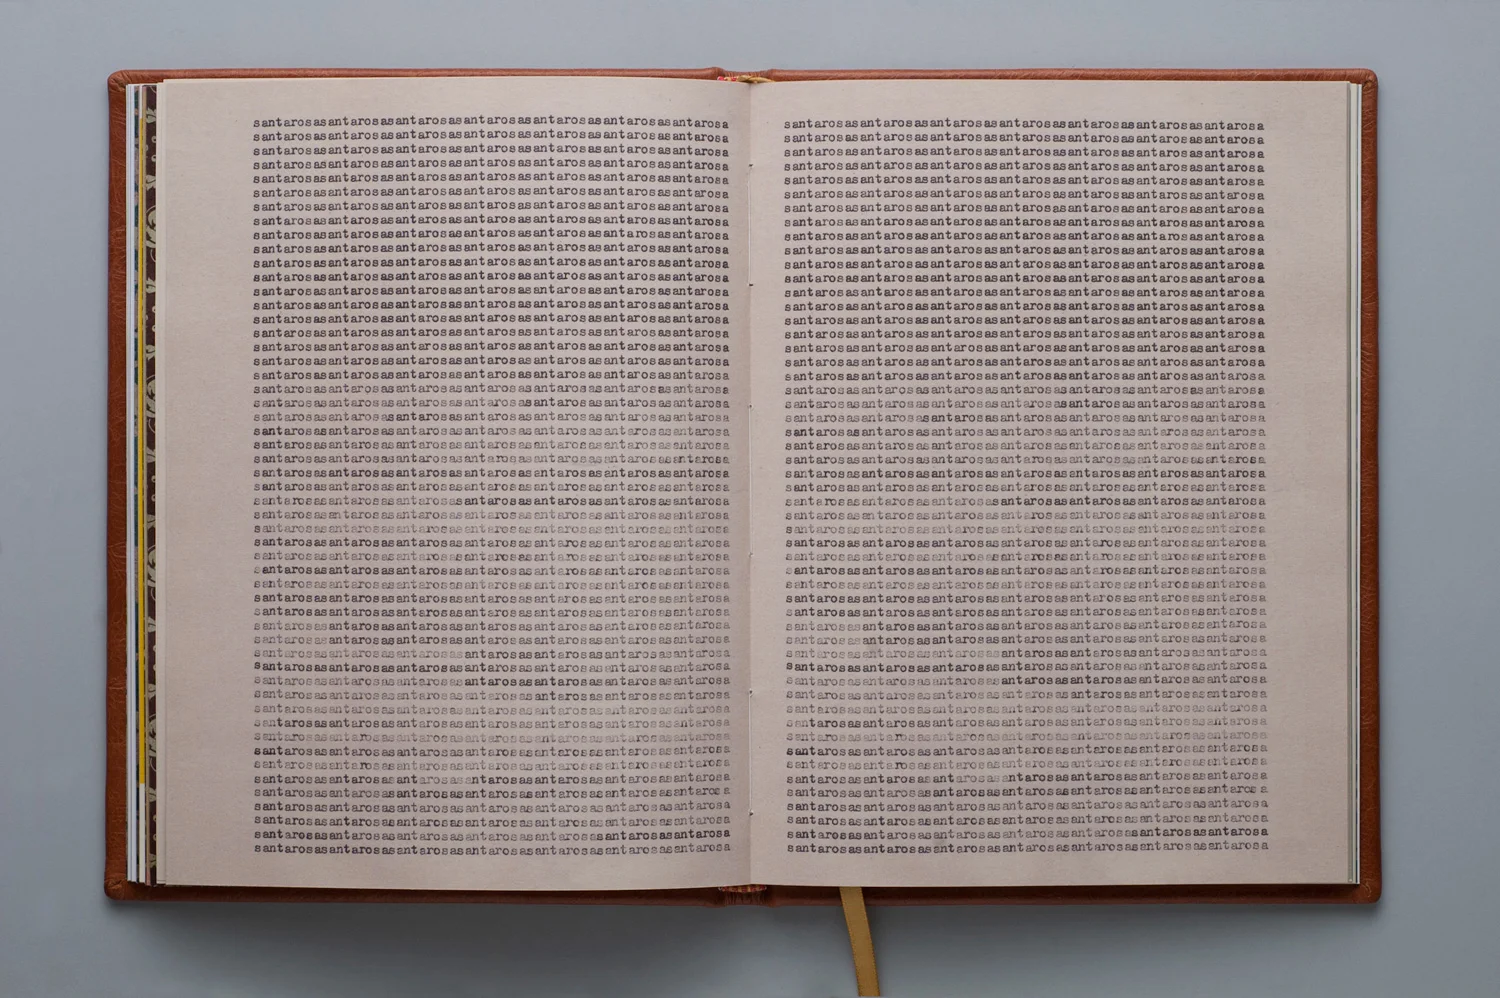 santarosasantarosasantarosasantarosasantarosasantarosasantarosa
santarosasantarosasantarosasantarosasantarosasantarosasantarosa
santarosasantarosasantarosasantarosasantarosasantarosasantarosa
santarosasantarosasantarosasantarosasantarosasantarosasantarosa
santarosasantarosasantarosasantarosasantarosasantarosasantarosa
santarosasantarosasantarosasantarosasantarosasantarosasantarosa
santarosasantarosasantarosasantarosasantarosasantarosasantarosa
santarosasantarosasantarosasantarosasantarosasantarosasantarosa
santarosasantarosasantarosasantarosasantarosasantarosasantarosa
santarosasantarosasantarosasantarosasantarosasantarosasantarosa
santarosasantarosasantarosasantarosasantarosasantarosasantarosa
santarosasantarosasantarosasantarosasantarosasantarosasantarosa
santarosasantarosasantarosasantarosasantarosasantarosasantarosa
santarosasantarosasantarosasantarosasantarosasantarosasantarosa
santarosasantarosasantarosasantarosasantarosasantarosasantarosa
santarosasantarosasantarosasantarosasantarosasantarosasantarosa
santarosasantarosasantarosasantarosasantarosasantarosasantarosa
santarosasantarosasantarosasantarosasantarosasantarosasantarosa
santarosasantarosasantarosasantarosasantarosasantarosasantarosa
santarosasantarosasantarosasantarosasantarosasantarosasantarosa
santarosasantarosasantarosasantarosasantarosasantarosasantarosa
santarosasantarosasantarosasantarosasantarosasantarosasantarosa
santarosasantarosasantarosasantarosasantarosasantarosasantarosa
santarosasantarosasantarosasantarosasantarosasantarosasantarosa
santarosasantarosasantarosasantarosasantarosasantarosasantarosa
santarosasantarosasantarosasantarosasantarosasantarosasantarosa
santarosasantarosasantarosasantarosasantarosasantarosasantarosa
santarosasantarosasantarosasantarosasantarosasantarosasantarosa
santarosasantarosasantarosasantarosasantarosasantarosasantarosa
santarosasantarosasantarosasantarosasantarosasantarosasantarosa
santarosasantarosasantarosasantarosasantarosasantarosasantarosa
santarosasantarosasantarosasantarosasantarosasantarosasantarosa
santarosasantarosasantarosasantarosasantarosasantarosasantarosa
santarosasantarosasantarosasantarosasantarosasantarosasantarosa
santarosasantarosasantarosasantarosasantarosasantarosasantarosa
santarosasantarosasantarosasantarosasantarosasantarosasantarosa
santarosasantarosasantarosasantarosasantarosasantarosasantarosa
santarosasantarosasantarosasantarosasantarosasantarosasantarosa
santarosasantarosasantarosasantarosasantarosasantarosasantarosa
santarosasantarosasantarosasantarosasantarosasantarosasantarosa
santarosasantarosasantarosasantarosasantarosasantarosasantarosa
santarosasantarosasantarosasantarosasantarosasantarosasantarosa
santarosasantarosasantarosasantarosasantarosasantarosasantarosa
santarosasantarosasantarosasantarosasantarosasantarosasantarosa
santarosasantarosasantarosasantarosasantarosasantarosasantarosa
santarosasantarosasantarosasantarosasantarosasantarosasantarosa
santarosasantarosasantarosasantarosasantarosasantarosasantarosa
santarosasantarosasantarosasantarosasantarosasantarosasantarosa
santarosasantarosasantarosasantarosasantarosasantarosasantarosa
santarosasantarosasantarosasantarosasantarosasantarosasantarosa
santarosasantarosasantarosasantarosasantarosasantarosasantarosa
santarosasantarosasantarosasantarosasantarosasantarosasantarosa
santarosasantarosasantarosasantarosasantarosasantarosasantarosa
santarosasantarosasantarosasantarosasantarosasantarosasantarosa
santarosasantarosasantarosasantarosasantarosasantarosasantarosa
santarosasantarosasantarosasantarosasantarosasantarosasantarosa
santarosasantarosasantarosasantarosasantarosasantarosasantarosa
santarosasantarosasantarosasantarosasantarosasantarosasantarosa
santarosasantarosasantarosasantarosasantarosasantarosasantarosa
santarosasantarosasantarosasantarosasantarosasantarosasantarosa
santarosasantarosasantarosasantarosasantarosasantarosasantarosa
santarosasantarosasantarosasantarosasantarosasantarosasantarosa
santarosasantarosasantarosasantarosasantarosasantarosasantarosa
santarosasantarosasantarosasantarosasantarosasantarosasantarosa
santarosasantarosasantarosasantarosasantarosasantarosasantarosa
santarosasantarosasantarosasantarosasantarosasantarosasantarosa
santarosasantarosasantarosasantarosasantarosasantarosasantarosa
santarosasantarosasantarosasantarosasantarosasantarosasantarosa
santarosasantarosasantarosasantarosasantarosasantarosasantarosa
santarosasantarosasantarosasantarosasantarosasantarosasantarosa
santarosasantarosasantarosasantarosasantarosasantarosasantarosa
santarosasantarosasantarosasantarosasantarosasantarosasantarosa
santarosasantarosasantarosasantarosasantarosasantarosasantarosa
santarosasantarosasantarosasantarosasantarosasantarosasantarosa
santarosasantarosasantarosasantarosasantarosasantarosasantarosa
santarosasantarosasantarosasantarosasantarosasantarosasantarosa
santarosasantarosasantarosasantarosasantarosasantarosasantarosa
santarosasantarosasantarosasantarosasantarosasantarosasantarosa
santarosasantarosasantarosasantarosasantarosasantarosasantarosa
santarosasantarosasantarosasantarosasantarosasantarosasantarosa
santarosasantarosasantarosasantarosasantarosasantarosasantarosa
santarosasantarosasantarosasantarosasantarosasantarosasantarosa
santarosasantarosasantarosasantarosasantarosasantarosasantarosa
santarosasantarosasantarosasantarosasantarosasantarosasantarosa
santarosasantarosasantarosasantarosasantarosasantarosasantarosa
santarosasantarosasantarosasantarosasantarosasantarosasantarosa
santarosasantarosasantarosasantarosasantarosasantarosasantarosa
santarosasantarosasantarosasantarosasantarosasantarosasantarosa
santarosasantarosasantarosasantarosasantarosasantarosasantarosa
santarosasantarosasantarosasantarosasantarosasantarosasantarosa
santarosasantarosasantarosasantarosasantarosasantarosasantarosa
santarosasantarosasantarosasantarosasantarosasantarosasantarosa
santarosasantarosasantarosasantarosasantarosasantarosasantarosa
santarosasantarosasantarosasantarosasantarosasantarosasantarosa
santarosasantarosasantarosasantarosasantarosasantarosasantarosa
santarosasantarosasantarosasantarosasantarosasantarosasantarosa
santarosasantarosasantarosasantarosasantarosasantarosasantarosa
santarosasantarosasantarosasantarosasantarosasantarosasantarosa
santarosasantarosasantarosasantarosasantarosasantarosasantarosa
santarosasantarosasantarosasantarosasantarosasantarosasantarosa
santarosasantarosasantarosasantarosasantarosasantarosasantarosa
santarosasantarosasantarosasantarosasantarosasantarosasantarosa
santarosasantarosasantarosasantarosasantarosasantarosasantarosa
santarosasantarosasantarosasantarosasantarosasantarosasantarosa
santarosasantarosasantarosasantarosasantarosasantarosasantarosa
santarosasantarosasantarosasantarosasantarosasantarosasantarosa